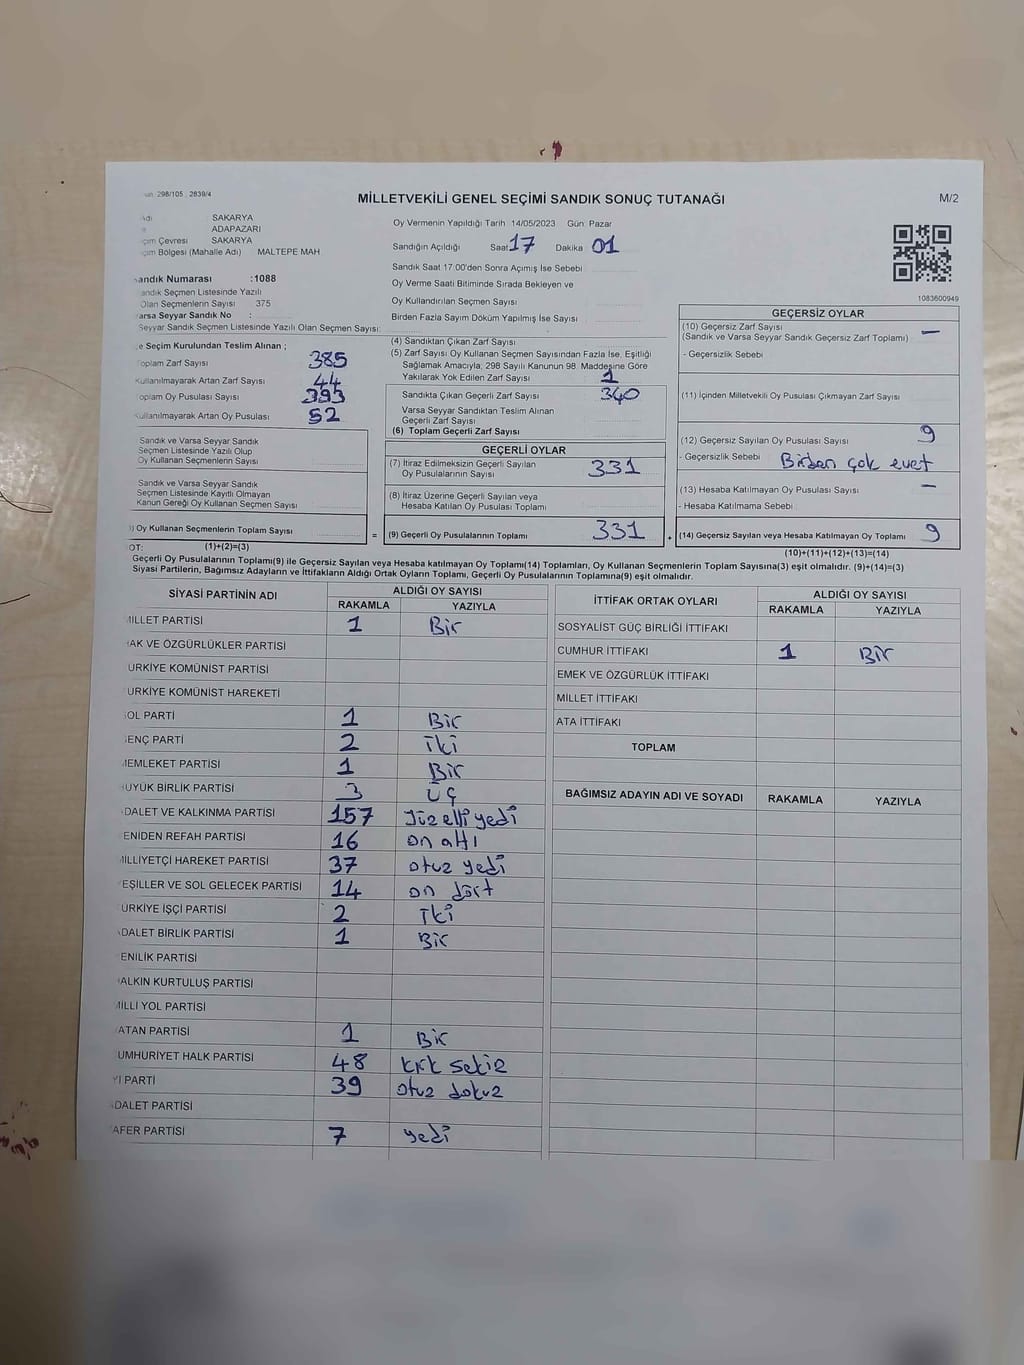 298/105 2839/4
MİLLETVEKİLİ GENEL SEÇİMİ SANDIK SONUÇ TUTANAĞI
M/2
SAKARYA
ADAPAZARI
SAKARYA
MALTEPE MAH
Oy Vermenin Yapıldığı Tarih 14/05/2023 Gün Pazar
Sandığın Açıldığı Saat 17 Dakika 01
Sandık Saat 17:00'den Sonra Açımış İse Sebebi
Oy Verme Saati Bitiminde Sırada Bekleyen ve
Oy Kullandırılan Seçmen Sayısı
Birden Fazla Sayım Döküm Yapılmış İse Sayısı
andık Numarası :1088
andık Seçmen Listesinde Yazılı
Olan Seçmenlerin Sayısı 375
arsa Seyyar Sandık No :
Seyyar Sandık Seçmen Listesinde Yazılı Olan Seçmen Sayısı:
1083600949
e Seçim Kurulundan Teslim Alınan ;
oplam Zarf Sayısı 385
ullanılmayarak Artan Zarf Sayısı 44
oplam Oy Pusulası Sayısı 393
ullanılmayarak Artan Oy Pusulası 52
Sandık ve Varsa Seyyar Sandık
Seçmen Listesinde Yazılı Olup
Oy Kullanan Seçmenlerin Sayısı
Sandık ve Varsa Seyyar Sandık
Seçmen Listesinde Kayıtlı Olmayan
Kanun Gereği Oy Kullanan Seçmen Sayısı
) Oy Kullanan Seçmenlerin Toplam Sayısı
(1)+(2)=(3)
(4) Sandıktan Çıkan Zarf Sayısı
(5) Zarf Sayısı Oy Kullanan Seçmen Sayısından Fazla İse, Eşitliği
Sağlamak Amacıyla, 298 Sayılı Kanunun 98. Maddesine Göre
Yakılarak Yok Edilen Zarf Sayısı 1
Sandıkta Çıkan Geçerli Zarf Sayısı 340
Varsa Seyyar Sandıktan Teslim Alınan
Geçerli Zarf Sayısı
(6) Toplam Geçerli Zarf Sayısı
GEÇERLİ OYLAR
(7) İtiraz Edilmeksizin Geçerli Sayılan
Oy Pusulalarının Sayısı 331
(8) İtiraz Üzerine Geçerli Sayılan veya
Hesaba Katılan Oy Pusulası Toplamı
= (9) Geçerli Oy Pusulalarının Toplamı 331 +
GEÇERSİZ OYLAR
(10) Geçersiz Zarf Sayısı –
(Sandık ve Varsa Seyyar Sandık Geçersiz Zarf Toplamı)
- Geçersizlik Sebebi
(11) İçinden Milletvekili Oy Pusulası Çıkmayan Zarf Sayısı
(12) Geçersiz Sayılan Oy Pusulası Sayısı 9
- Geçersizlik Sebebi Birden çok evet
(13) Hesaba Katılmayan Oy Pusulası Sayısı –
- Hesaba Katılmama Sebebi
(14) Geçersiz Sayılan veya Hesaba Katılmayan Oy Toplamı 9
(10)+(11)+(12)+(13)=(14)
OT:
Geçerli Oy Pusulalarının Toplamı(9) ile Geçersiz Sayılan veya Hesaba katılmayan Oy Toplam(14) Toplamları, Oy Kullanan Seçmenlerin Toplam Sayısına(3) eşit olmalıdır. (9)+(14)=(3)
Siyasi Partilerin, Bağımsız Adayların ve İttifakların Aldığı Ortak Oyların Toplamı, Geçerli Oy Pusulalarının Toplamına(9) eşit olmalıdır.
SİYASİ PARTİNİN ADI ALDIĞI OY SAYISI
RAKAMLA YAZIYLA
İLLET PARTİSİ 1 Bir
AK VE ÖZGÜRLÜKLER PARTİSİ
ÜRKİYE KOMÜNİST PARTİSİ
ÜRKİYE KOMÜNİST HAREKETİ
OL PARTİ 1 Bir
ENÇ PARTİ 2 iki
EMLEKET PARTİSİ 1 Bir
ÜYÜK BİRLİK PARTİSİ 3 üç
DALET VE KALKINMA PARTİSİ 157 Yüz elli yedi
ENİDEN REFAH PARTİSİ 16 on altı
İLLİYETÇİ HAREKET PARTİSİ 37 otuz yedi
EŞİLLER VE SOL GELECEK PARTİSİ 14 on dört
ÜRKİYE İŞÇİ PARTİSİ 2 İki
DALET BİRLİK PARTİSİ 1 Bir
ENİLİK PARTİSİ
ALKIN KURTULUŞ PARTİSİ
İLLİ YOL PARTİSİ
ATAN PARTİSİ 1 Bir
UMHURİYET HALK PARTİSİ 48 kırk sekiz
Yİ PARTİ 39 otuz dokuz
DALET PARTİSİ
AFER PARTİSİ 7 yedi
İTTİFAK ORTAK OYLARI ALDIĞI OY SAYISI
RAKAMLA YAZIYLA
SOSYALİST GÜÇ BİRLİĞİ İTTİFAKI
CUMHUR İTTİFAKI 1 Bir
EMEK VE ÖZGÜRLÜK İTTİFAKI
MİLLET İTTİFAKI
ATA İTTİFAKI
TOPLAM
BAĞIMSIZ ADAYIN ADI VE SOYADI RAKAMLA YAZIYLA